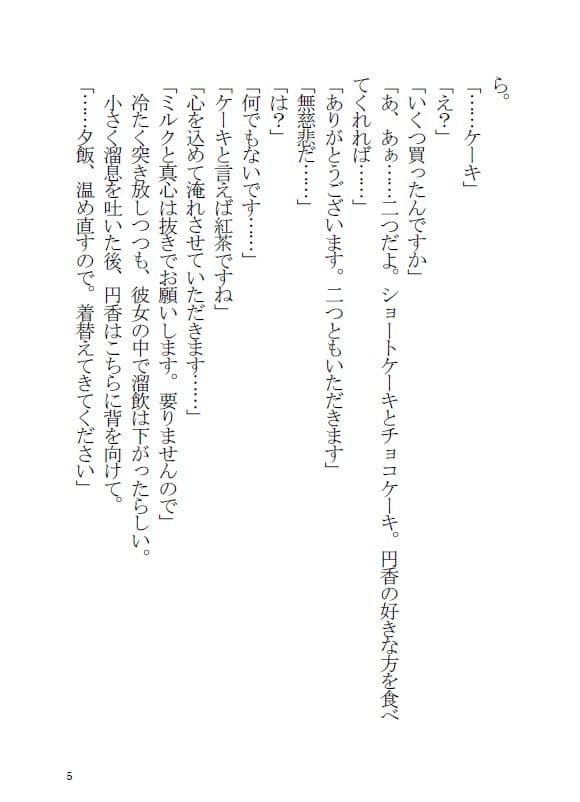 ら。
「……ケーキ」
「え？」
「いくつ買ったんですか」
「あ、あぁ……二つだよ。ショートケーキとチョコケーキ。円香の好きな方を食べ
てくれれば……」
「ありがとうございます。二つともいただきます」
「無慈悲だ……」
「は？」
「何でもないです……」
「ケーキと言えば紅茶ですね」
「心を込めて淹れさせていただきます……」
「ミルクと真心は抜きでお願いします。要りませんので」
冷たく突き放しつつも、彼女の中で溜飲は下がったらしい。
小さく溜息を吐いた後、円香はこちらに背を向けて。
「……夕飯、温め直すので。着替えてきてください」
5